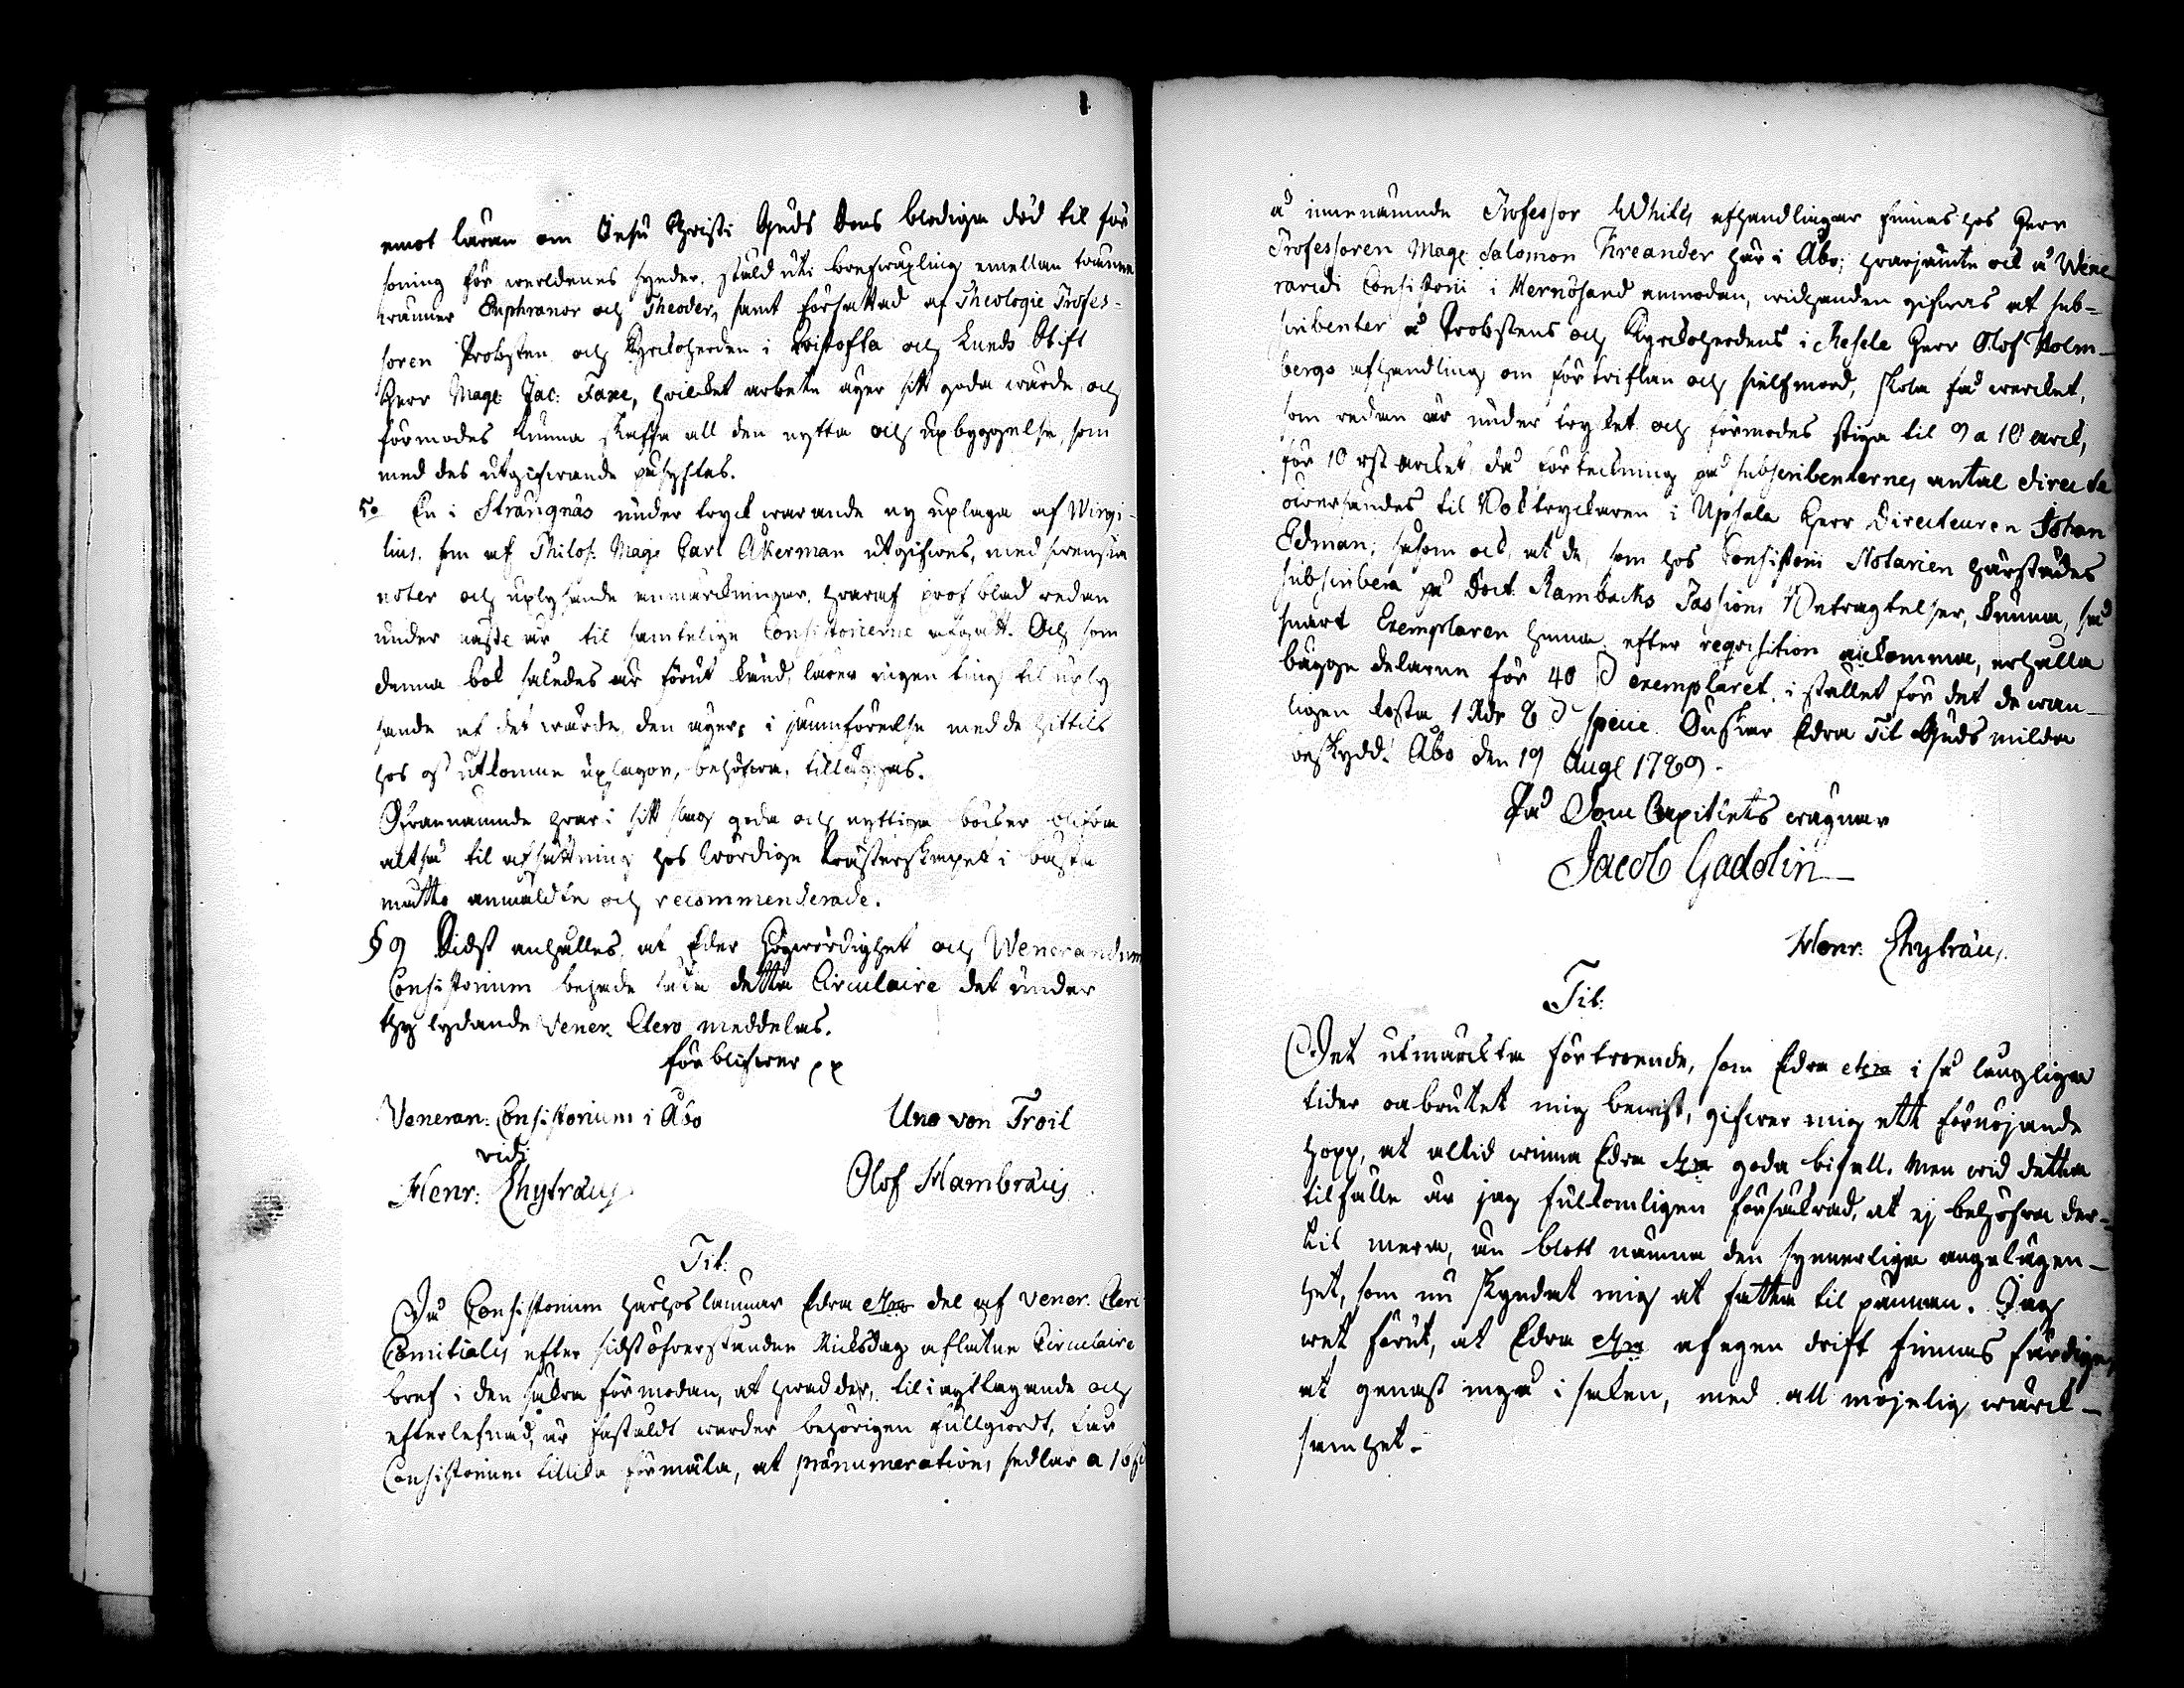 emot läran om Jesu Christi Guds Sons blodiga död til för
soning för werldenes synder, stäld uti brefwäxling emellan twänne
wänner Euphranor och Theodor, samt författad af Theologie Profes-
soren Probsten och Kyrckoherden i Tristofta och Lunds Stift
Herr Mag: Jac: Faxe, hvilcket arbete äger sitt goda wärde, och
förmodes kunna skaffa all den nytta och upbyggelse, som
med des utgifwande påsyftas.
5o En i Strängnäs under tryck warande ny uplaga af Wirgi-
lius, som af Philos. Mag. Carl Åkerman utgifwes, med swenska
noter och uplysande anmärckningar, hwaraf prof blad redan
under näste år til samtelige Consistorierne afgått. Och som
denna bok således är förut känd, lärer ingen ting til uply
sande af det wärde, den äger, i jämnförelse med de hittils
hos oss utkomne uplagor, behöfwa, tilläggas.
Ofwannämnde hwar i sitt slag goda och nyttiga böcker blifwa
altså til afsättning hos Wördige Prästerskapet i bästa
måtto anmäldte och recommenderade.
§ 9 Sidst anhålles, at Eder Högwördighet och Venerandum
Consistorium behagade låta detta Circulaire det under
thy lydande Vener. Clero meddelas.
förblifwer pp
Veneran: Consistorium i Åbo Uno von Troil
vidi
Henr: Chytræus Olof Hambræus
Tit:
Då Consistorium härhos lämnar Edra etcra del af Vener. Cleri
Comitialis efter sidst öfverståndne Riksdag aflåtne Circulaire
bref i den säkra förmodan, at hwad der, til iagttagande och
efterlefnad, är faststäldt warder behörigen fullgiordt, får
Consistorium tillika förmäla, at pränumerations sedlar a 16 s
å innenämnde Professor Whites afhandlingar finnas hos Herr
Professoren Mag. Salomon Kreander här i Åbo; hvarjämte ock å Wene
randi Consistorii i Hernösand anmodan, widhanden gifwas at sub-
scribenter å Probstens och Kyrckoherdens i Resele Herr Olof Holm-
bergs afhandling om förtviflan och sielfmord, skola få wercket,
som redan är under trycket och förmodes stiga til 9 a 10 arck,
för 10 rst arcket, då förteckning på subscribenternes antal directe
öwersändes til Boktryckaren i Upsala Herr Directeuren Johan
Edman; såsom ock, at de, som hos Consistorii Notarien härstädes
subscribera på Doct. Rambachs Passions Betragtelser, kunna, så
snart Exemplaren hinna efter reqvisition anckomma, erhålla
bägge delarne för 40 s exemplaret, i stället för det de wan-
ligen kosta 1 Rdr 8 s specie. Önskar Edra Tit Guds milda
beskydd. Åbo den 19 Aug. 1789.
På Dom Capitlets wägnar
Jacob Gadolin
Henr: Chytræus.
Tit:
Det utmärckta förtroende, som Edra etcra i så langliga
tider oabrutet mig bewist, gifwer mig ett förnöjande
hopp, at altid winna Edra etcra goda bifall. Men wid detta
tilfälle är jag fulkomligen försäkrad, at ej behöfwa der-
til mera, än blott nämna den synnerliga angelägen-
het, som nu skyndat mig at fatta til pännan. Jag
wet förut, at Edra etcra af egen drift finnas färdige,
at genast ingå i saken, med all möjelig wärck-
samhet.